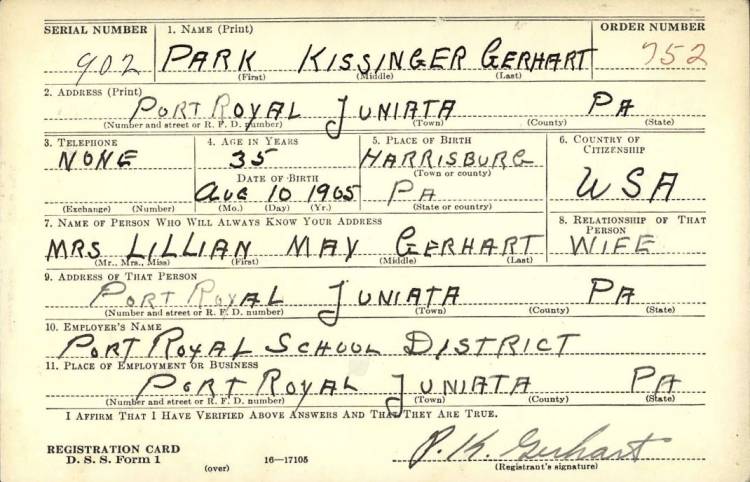 SERIAL NUMBER 1. NAME (Print) ORDER NUMBER
902 PARK KISSINGER GERHART 752
(First) (Middle) (Last)
2. ADDRESS (Print)
PORT ROYAL JUNIATA PA
(Number and street or R. F. D. number) (Town) (County) (State)
3. TELEPHONE 4. AGE IN YEARS 5. PLACE OF BIRTH 6. COUNTRY OF CITIZENSHIP
NONE 35 HARRISBURG
(Town or county)
DATE OF BIRTH
AUG 10 1905 PA USA
(Exchange) (Number) (Mo.) (Day) (Yr.) (State or country)
7. NAME OF PERSON WHO WILL ALWAYS KNOW YOUR ADDRESS 8. RELATIONSHIP OF THAT PERSON
MRS LILLIAN MAY GERHART WIFE
(Mr., Mrs., Miss) (First) (Middle) (Last)
9. ADDRESS OF THAT PERSON
PORT ROYAL JUNIATA PA
(Number and street or R. F. D. number) (Town) (County) (State)
10. EMPLOYER'S NAME
PORT ROYAL SCHOOL DISTRICT
11. PLACE OF EMPLOYMENT OR BUSINESS
PORT ROYAL JUNIATA PA
(Number and street or R. F. D. number) (Town) (County) (State)
I AFFIRM THAT I HAVE VERIFIED ABOVE ANSWERS AND THAT THEY ARE TRUE.
P. K. Gerhart
REGISTRATION CARD
D. S. S. Form 1 (over) 16—17105 (Registrant's signature)